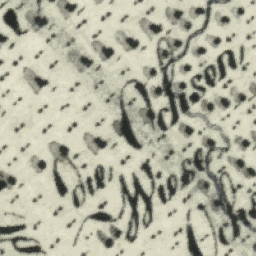 Ochsen,
Die Wiese
Ochs